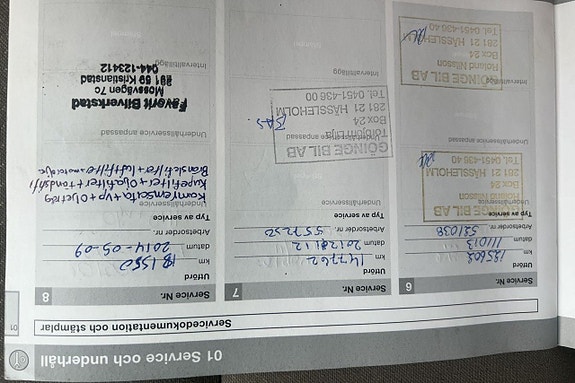 01 Service och underhåll
Servicedokumentation och stämplar
01
Service Nr. 6
Utförd
km 125602
datum 111013
Arbetsorder nr. 581038
Typ av service
Underhållsservice
GÖINGE BIL AB
Roland Nilsson
Box 24
281 21 HÄSSLEHOLM
Tel. 0451-436 40
Underhållsservice anpassad
Intervalltillägg
GÖINGE BIL AB
Roland Nilsson
Box 24
281 21 HÄSSLEHOLM
Tel. 0451-436 40
Intervalltillägg
Service Nr. 7
Utförd
km 147762
datum 20121112
Arbetsorder nr. 557250
Typ av service
Underhållsservice
GÖINGE BIL AB
Box 24
281 21 HÄSSLEHOLM
Tel. 0451-436 00
Underhållsservice anpassad
Intervalltillägg
Service Nr. 8
Utförd
km 181550
datum 2014-05-09
Arbetsorder nr.
Typ av service
Underhållsservice
Kamremsats + vp + oljebyte
Kupefilter + Oljefilter + Tändstift
Bränslefilter + Luftfilter
Underhållsservice anpassad
Favorit Bilverkstad
Mossvägen 7c
291 59 Kristianstad
044-123412
Intervalltillägg